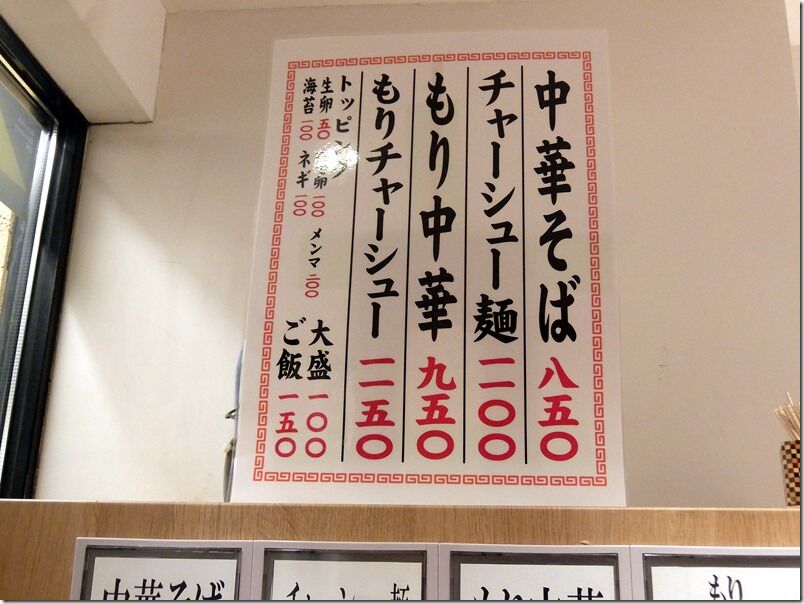 中華そば 八五〇
チャーシュー麺 一一〇〇
もり中華 九五〇
もりチャーシュー 一一五〇
トッピング
生卵 五〇 卵 一〇〇 メンマ 二〇〇 大盛 一〇〇
海苔 一〇〇 ネギ 一〇〇 ご飯 一五〇
中華そば
もり中華
もり